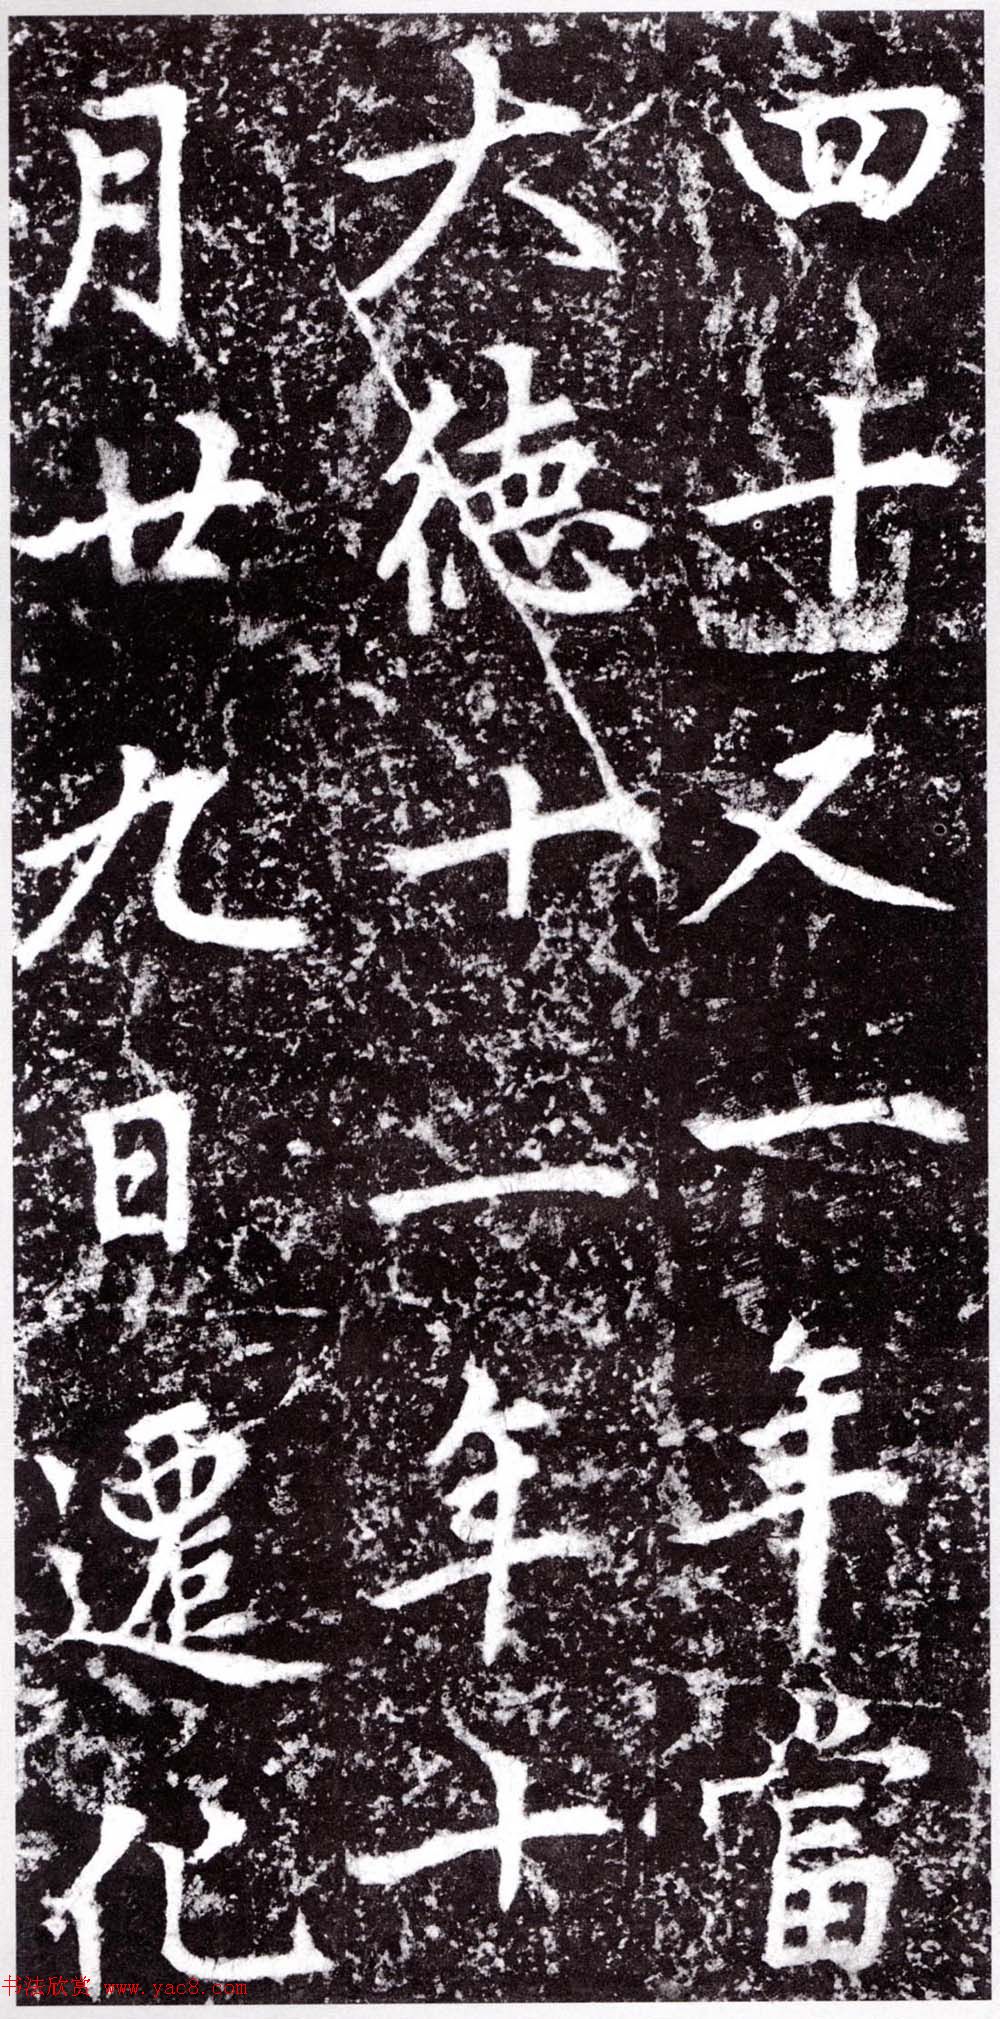 四十又一年當
大德十一年十
月廿九日遷化
书法欣赏 www.yac8.com